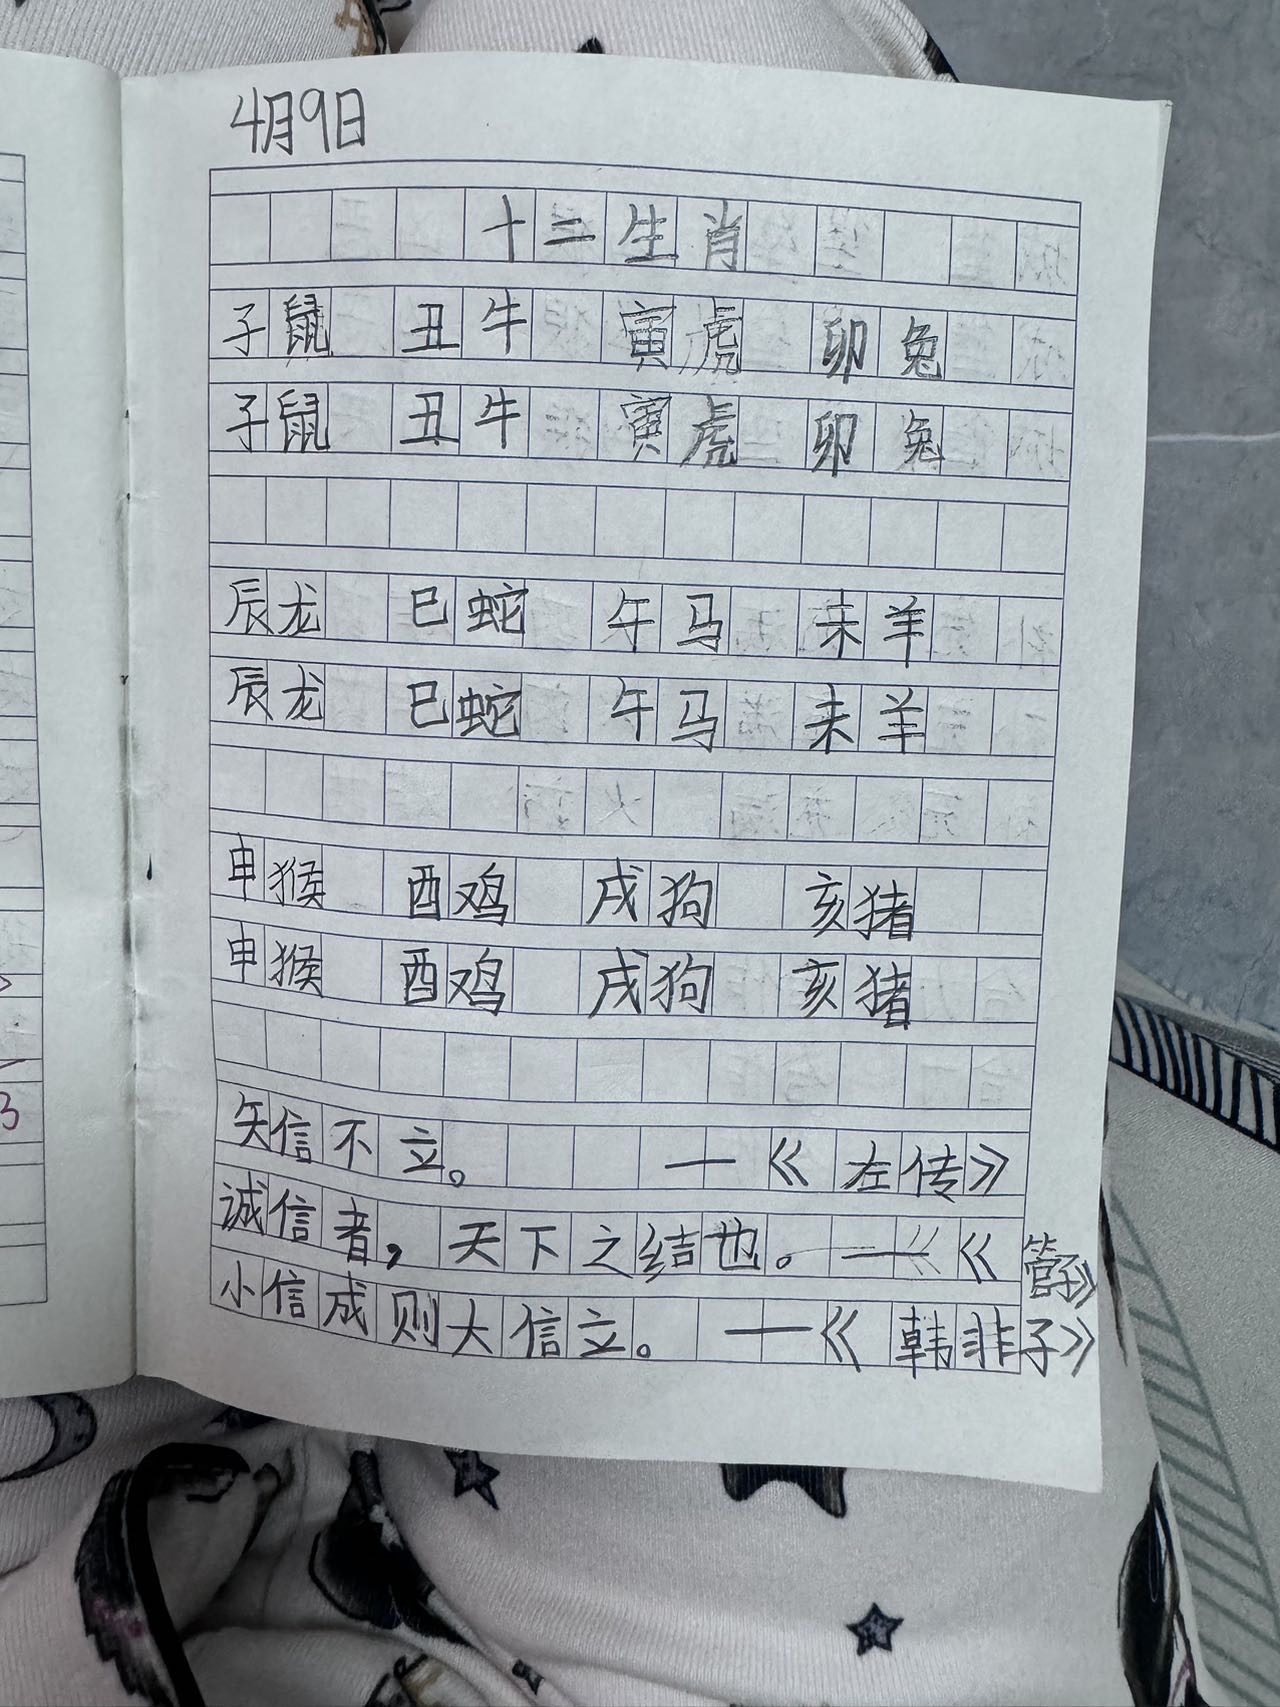 4月9日
十二生肖
子鼠 丑牛 寅虎 卯兔
子鼠 丑牛 寅虎 卯兔
辰龙 巳蛇 午马 未羊
辰龙 巳蛇 午马 未羊
申猴 酉鸡 戌狗 亥猪
申猴 酉鸡 戌狗 亥猪
失信不立。 —《左传》
诚信者,天下之结也。—《管子》
小信成则大信立。 —《韩非子》